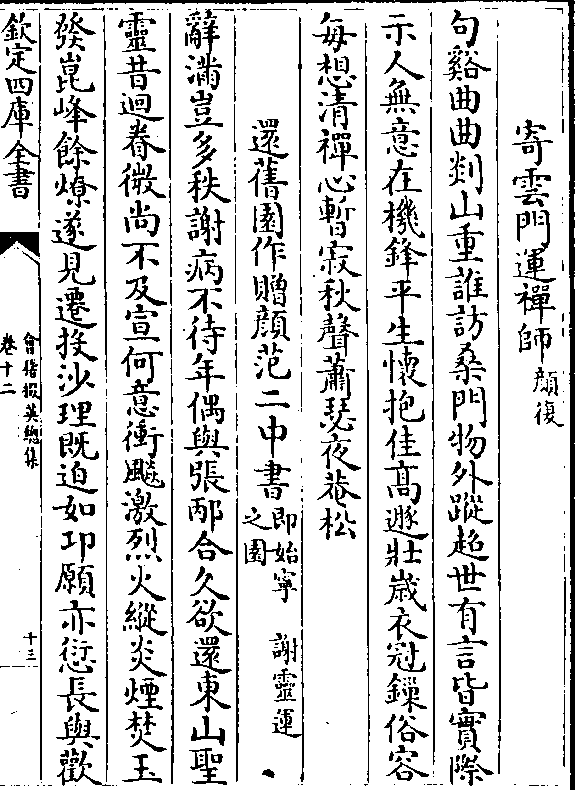 寄雲門運禪師 顔復
句谿曲曲剡山重誰訪桑門物外蹤超世有言皆實際
示人無意在機鋒平生懷抱佳高遯壯歳衣冠鏁俗容
每想清禪心暫寂秋聲蕭瑟夜菴松
還舊園作贈顔范二中書 即始寧之園 謝靈運
辭滿豈多秩謝病不待年偶與張邴合久欲還東山聖
靈昔迴眷微尚不及宣何意衝飈激烈火縱炎煙焚玉
發崑峰餘燎遂見遷投沙理既迫如卭願亦愆長與歡
欽定四庫全書
會稽掇英總集
卷十二
十三